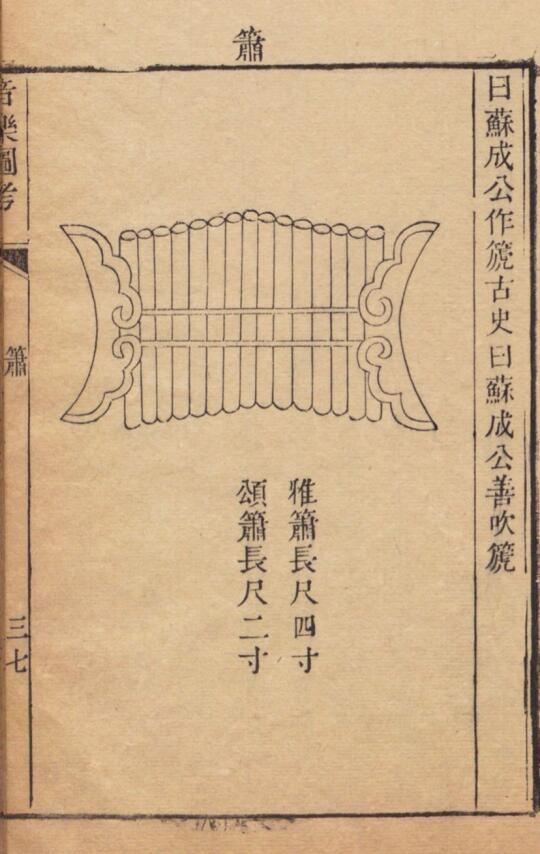 簫
曰蘇成公作篪古史曰蘇成公善吹篪
雅簫長尺四寸
頌簫長尺二寸
音樂圖考
簫
三七